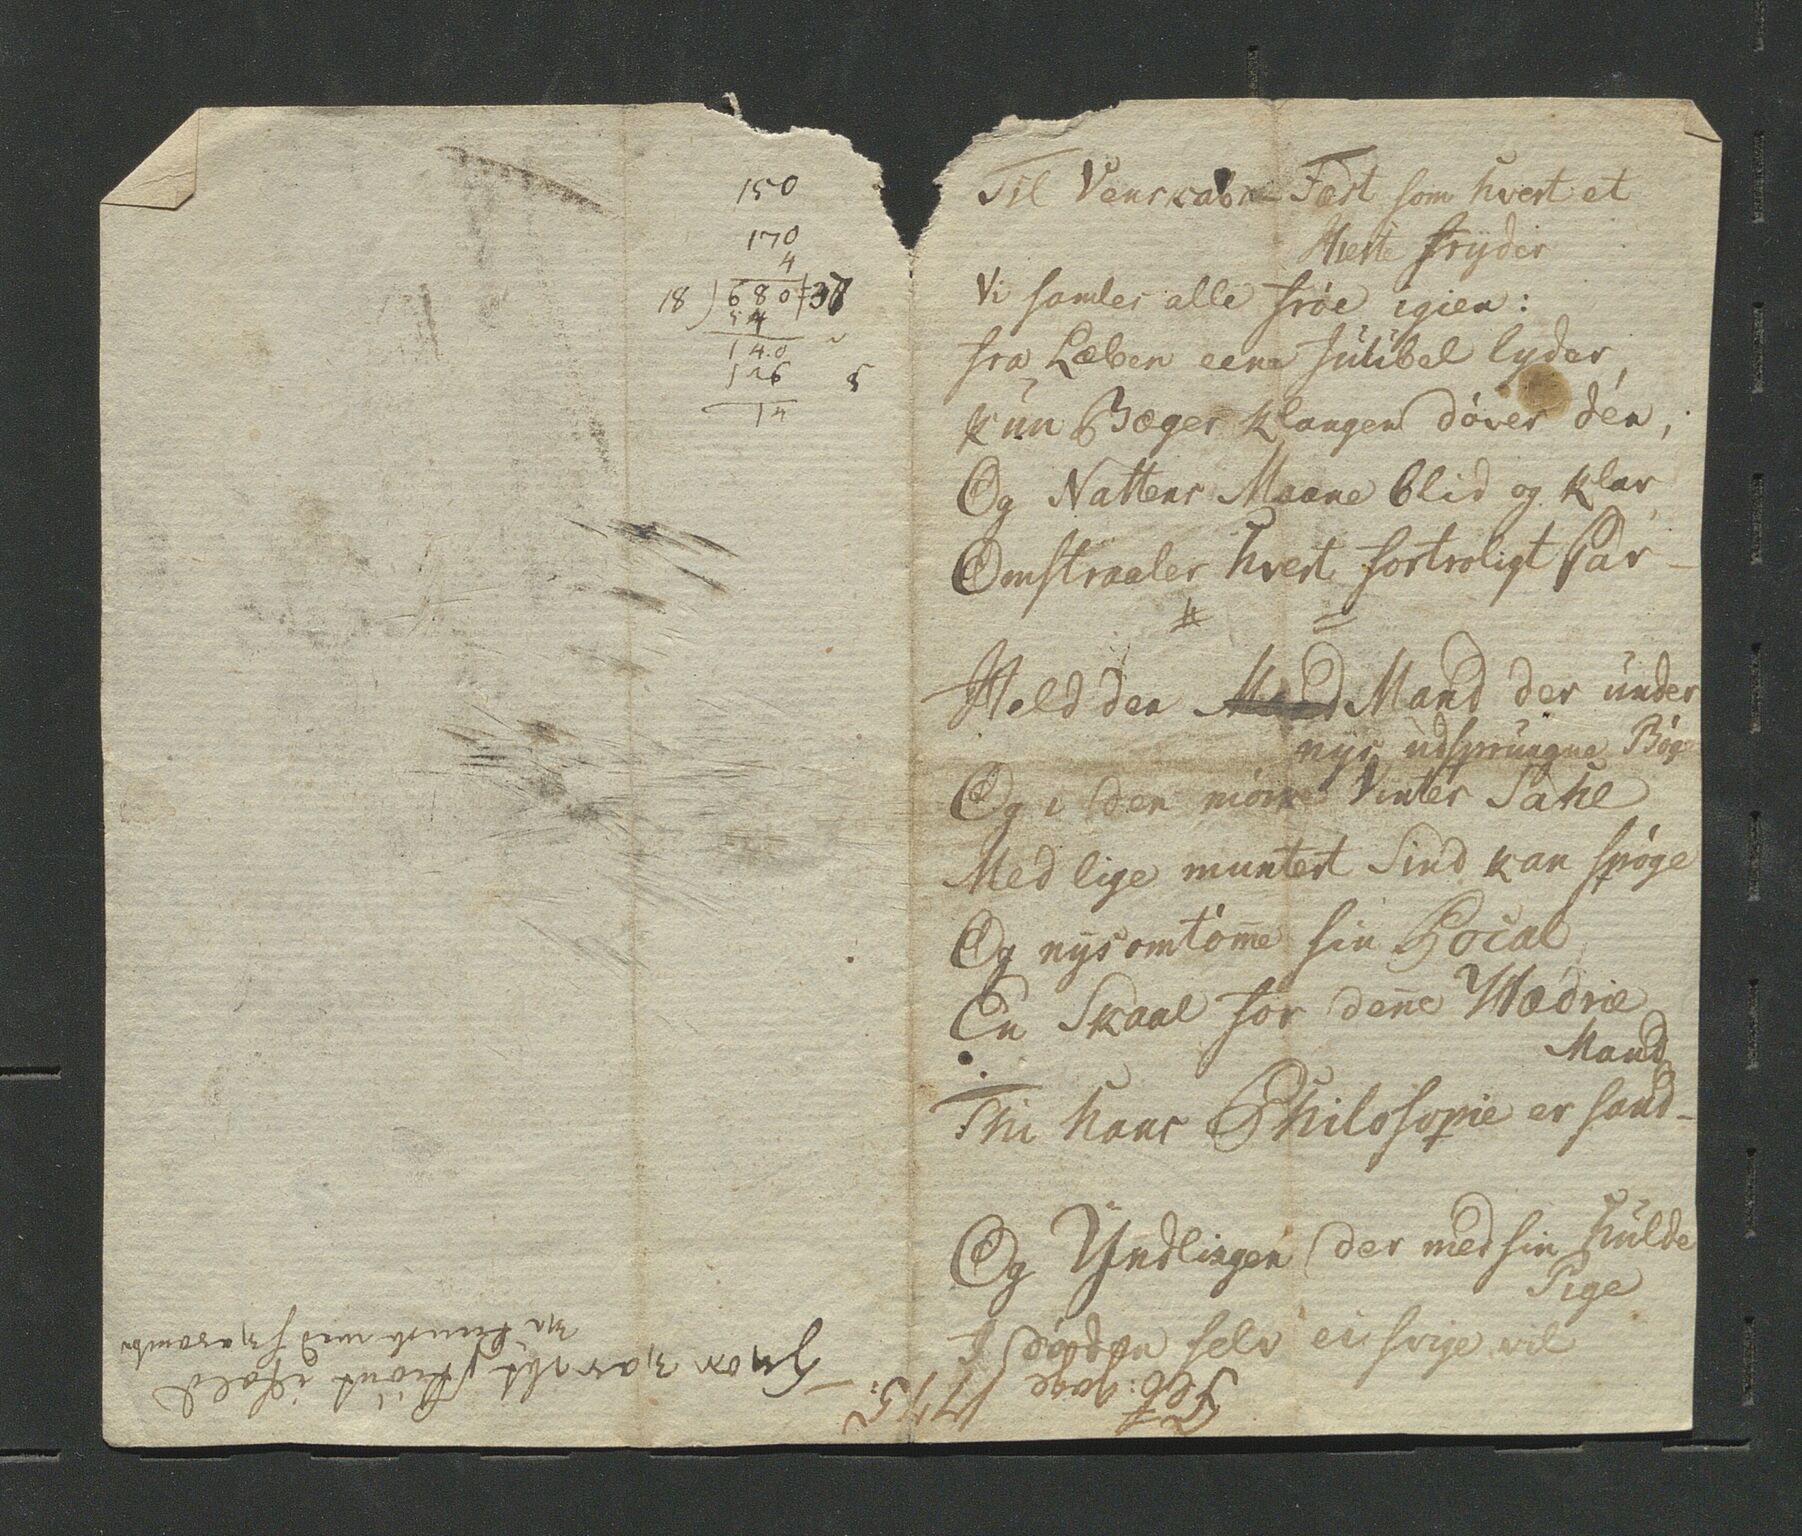 150
170
4
18 ) 680 / 37
54
140
126 5
14
Til Venskabs Fest som hvert et
Hierte fryder
Vi samles alle froe igien:
fra Læben eene Jubel lyder,
kun Bæger klangen døver den,
Og Nattens Maane blid og klar
Omstraaler hvert fortroligt Par -
Held den Mand Mand der under
nys udsprungne Bøge
Og i den mörke Vinter Sahl
Med lige muntert Sind kan spøge
Og nysomtöme sin Pocal
En Skaal for dene Hædrie
Mand
Thi hans Philosopie er sand -
Og Yndlingen der med sin hulde
Pige
I døden selv ei svige vil